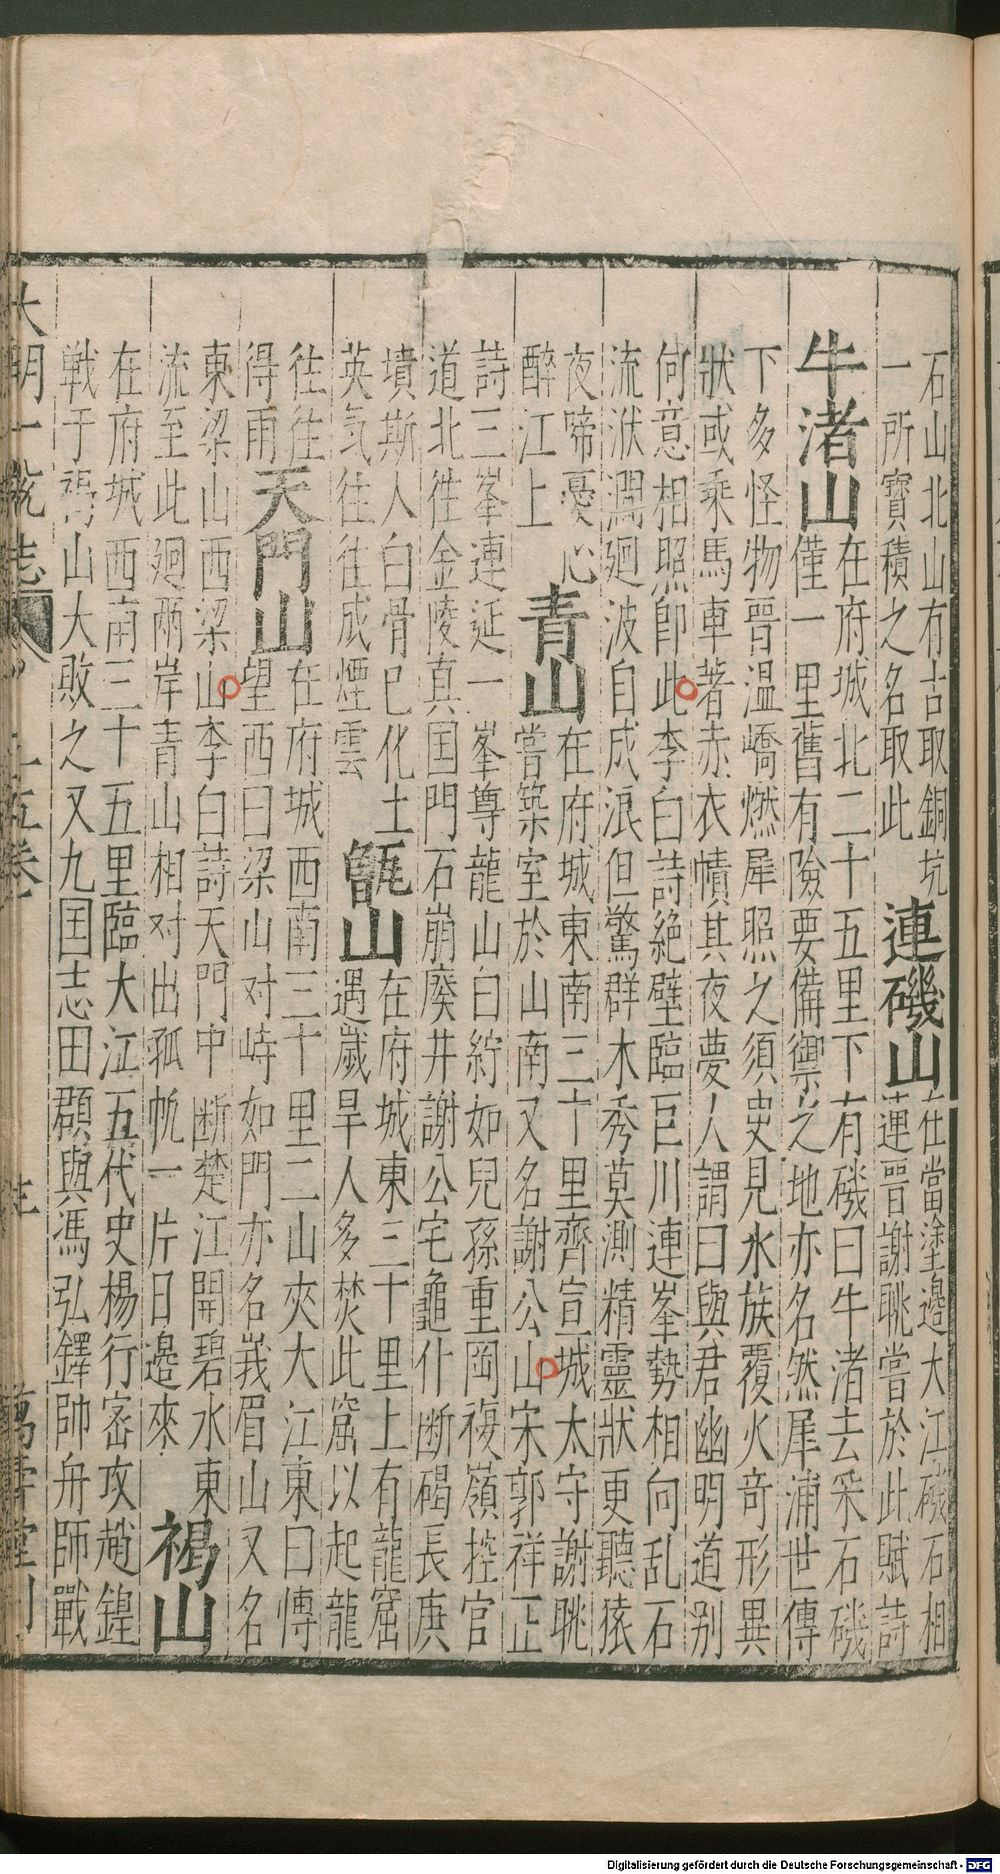 石山北山有古取銅坑
一所寶積之名取此
連磯山
在當塗邉大江磯石相
連晋謝眺嘗於此賦詩
牛渚山
在府城北二十五里下有磯曰牛渚去采石磯
僅一里舊有險要備禦之地亦名然犀浦世傳
下多怪物晋温嶠燃犀照之須史見水族覆火竒形異
狀或乘馬車著赤衣幘其夜夢人謂曰與君幽明道别
何意相照即此李白詩絶壁臨巨川連峯勢相向乱石
流洑澗廻波自成浪但驚群木秀莫測精靈狀更聽猿
夜啼憂心
醉江上
青山
在府城東南三十里齊宣城太守謝眺
嘗築室於山南又名謝公山宋郭祥正
詩三峯連延一峯尊龍山白紵如兒孫重岡複嶺控官
道北徃金陵真囯門石崩廢井謝公宅龜仆断碣長庚
墳斯人白骨巳化土
英気往往成煙雲
甑山
在府城東三十里上有龍窟
遇嵗旱人多焚此窟以起龍
往徃
得雨
天門山
在府城西南三十里二山夾大江東曰慱
望西曰梁山对峙如門亦名峩眉山又名
東梁山西梁山李白詩天門中断楚江開碧水東
流至此廻兩岸青山相对出孤帆一片日邉來
褐山
在府城西南三十五里臨大江五代史楊行密攻趙鍠
戰于褐山大敗之又九囯志田頵與馮弘鐸帥舟師戰
大明一統志
十五卷
萬壽堂刊
Digitalisierung gefördert durch die Deutsche Forschungsgemeinschaft - DFG